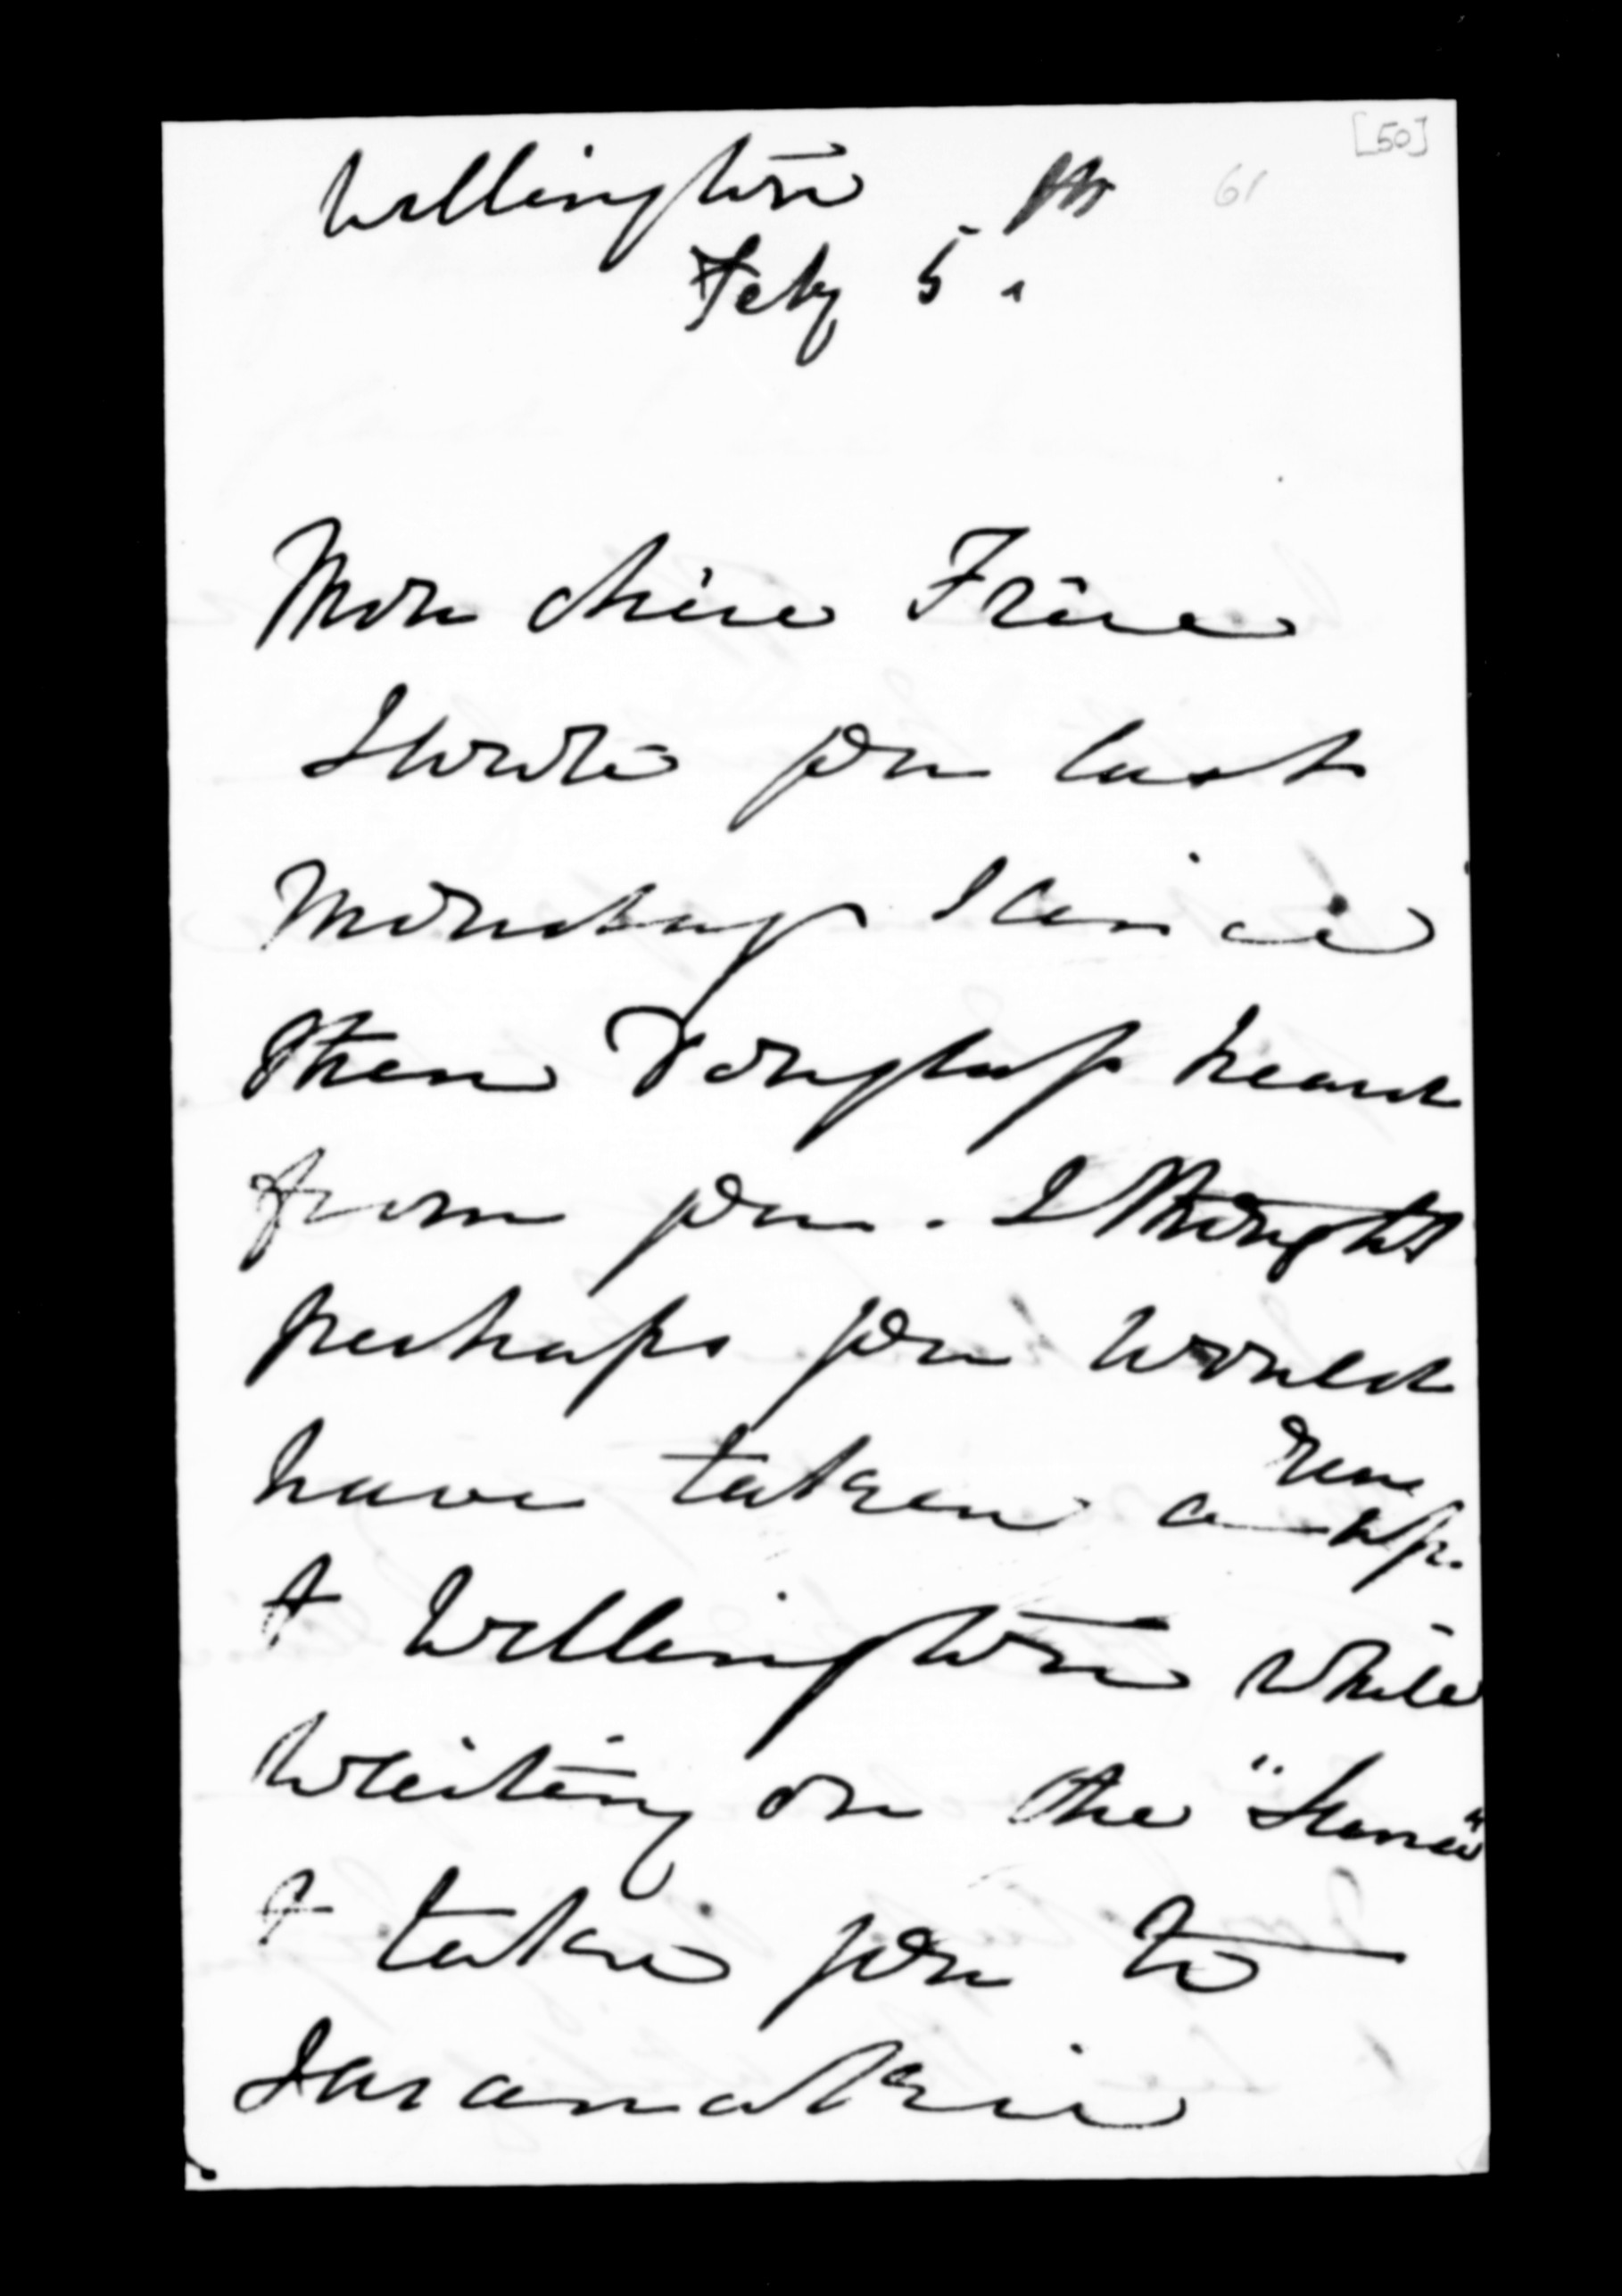 [50]
Wellington 61
Feby 5.
Mon chere Frere
I wrote you last
Monday & since
then Douglas heard
from you. I thought
perhaps you would
have taken a run up
to Wellington while
waiting on the "Stenia"
& take you to
Taranakie